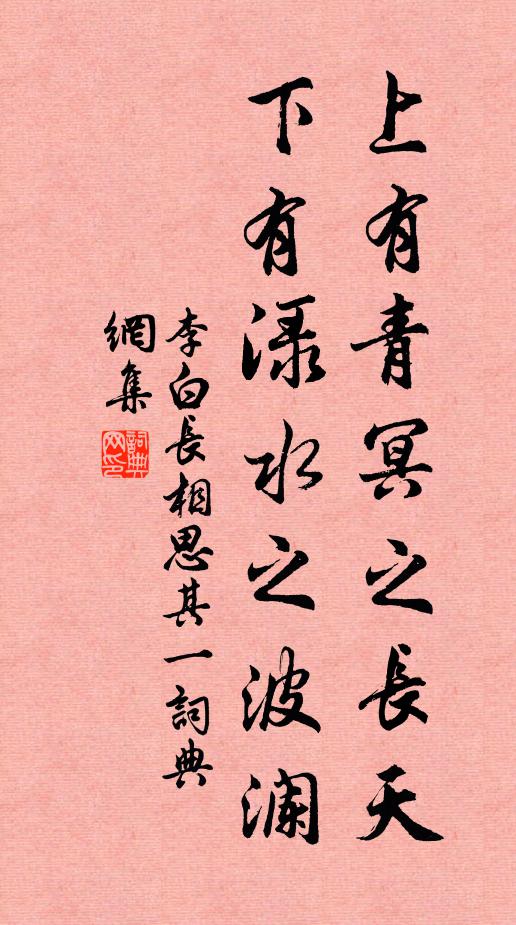 上有青冥之長天
下有淥水之波澜
李白長相思其一詞典
網集
詞典網印